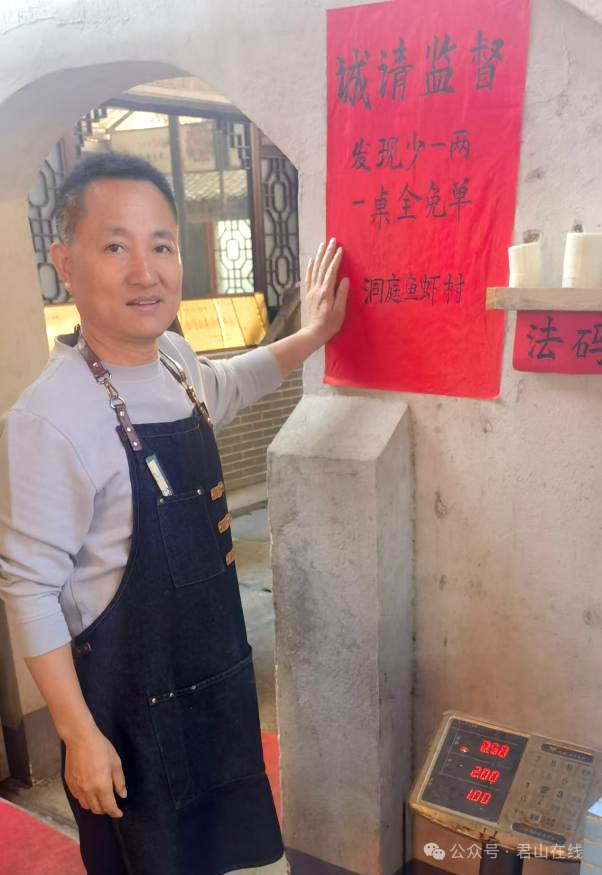 诚请监督
发现少一两
一桌全免单
洞庭鱼虾村
法码
0.50
2.00
1.00
公众号·君山在线